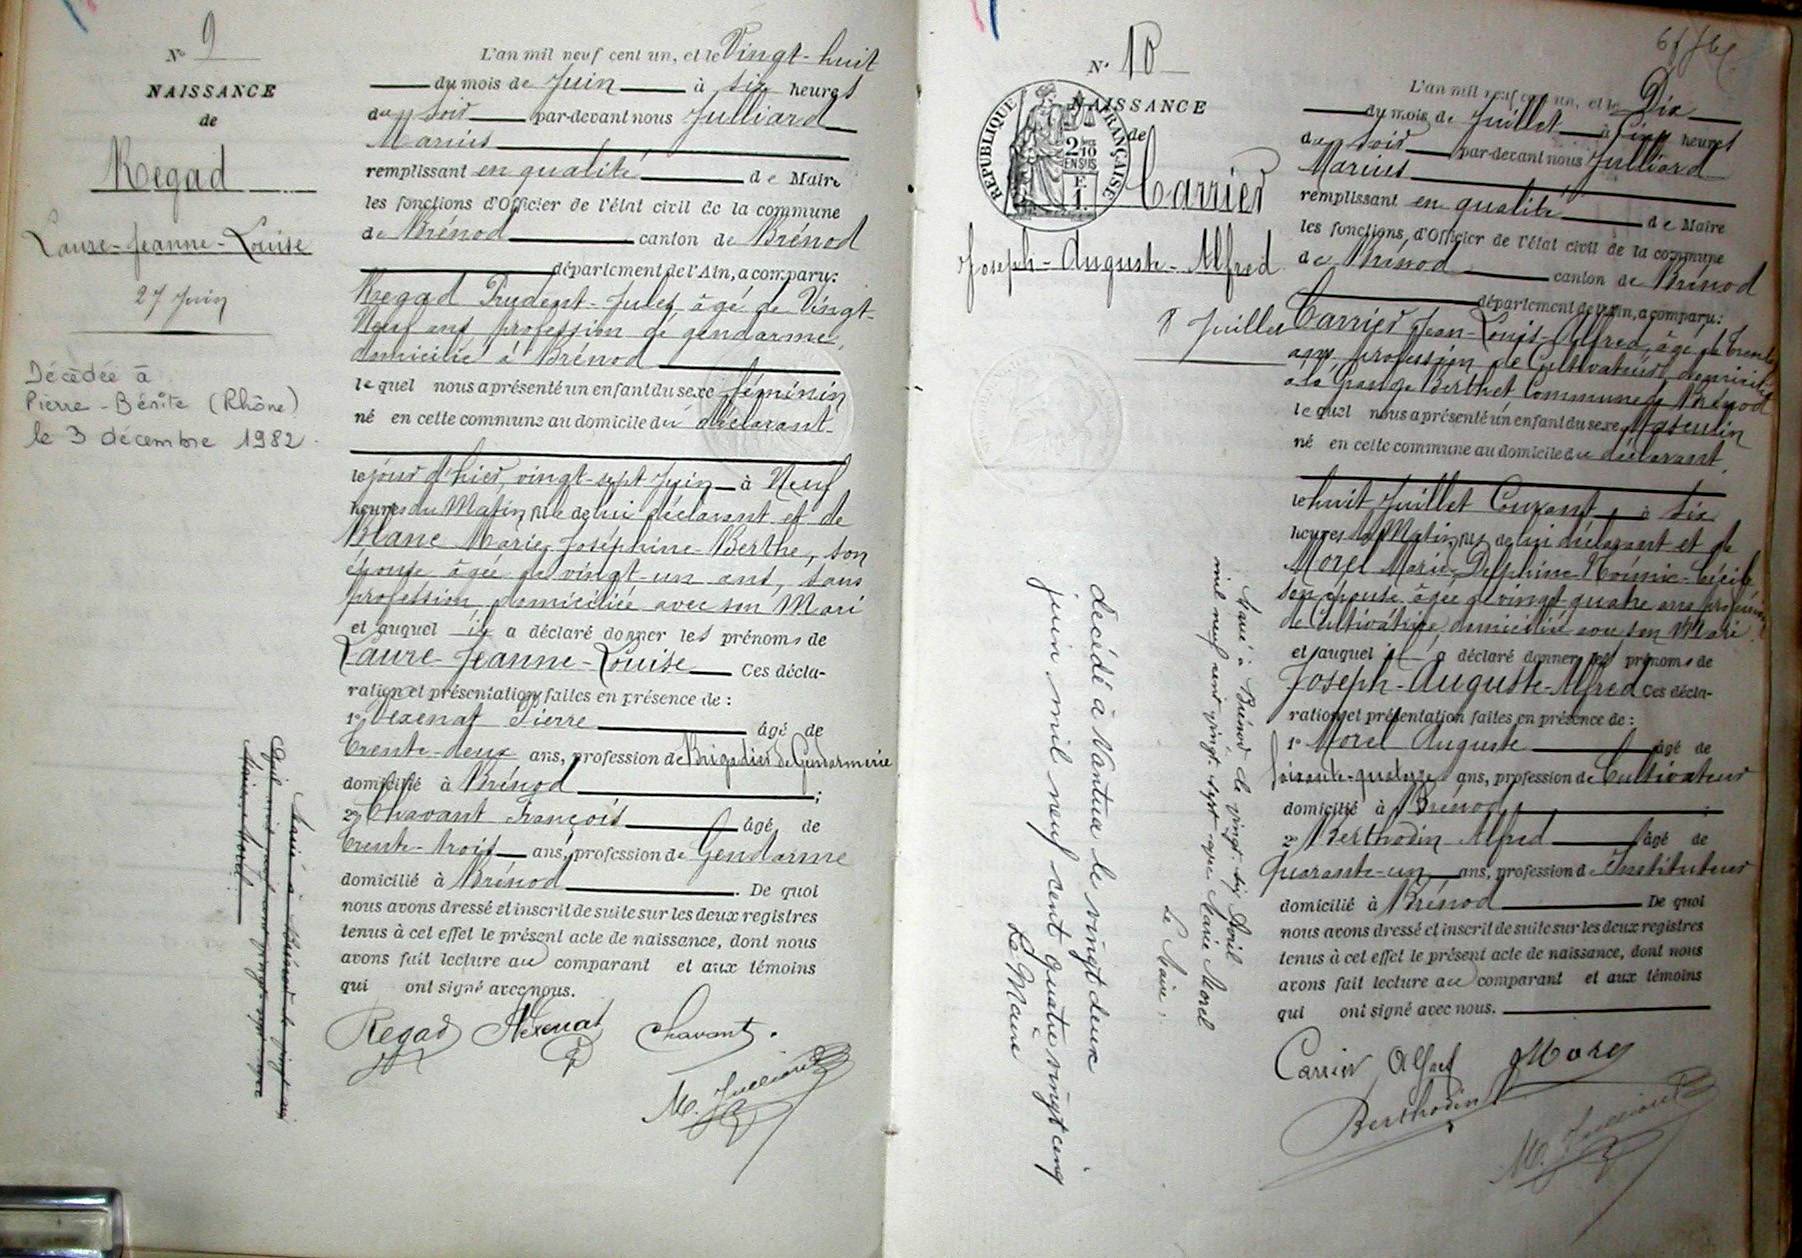 N° 9
NAISSANCE
de
Regad
Laure-Jeanne-Louise
27 Juin
Décédée à
Pierre-Bénite (Rhône)
le 3 décembre 1982.
Marié à Brénod le vingt six
Avril mil neuf cent vingt sept avec
Marie Morel
L'an mil neuf cent un, et le Vingt-huit
du mois de Juin à six heures
du soir par-devant nous Julliard
Marius
remplissant en qualité de Maire
les fonctions d'Officier de l'état civil de la commune
de Brénod canton de Brénod
département de l'Ain, a comparu:
Regad Prudent-Jules, âgé de Vingt-
Neuf ans profession de gendarme,
domicilié à Brénod
lequel nous a présenté un enfant du sexe féminin
né en cette commune au domicile du déclarant
le jour d'hier vingt-sept Juin à Neuf
heures du Matin, fille de lui déclarant et de
Blanc Marie Joséphine-Berthe, son
épouse âgée de vingt-un ans, sans
profession, domiciliée avec son Mari
et auquel il a déclaré donner les prénoms de
Laure-Jeanne-Louise Ces décla-
ration et présentation faites en présence de :
1° Vexenat Pierre âgé de
trente-deux ans, profession de Brigadier de Gendarmerie
domicilié à Brénod ;
2° Chavant François âgé de
trente-trois ans, profession de Gendarme
domicilié à Brénod . De quoi
nous avons dressé et inscrit de suite sur les deux registres
tenus à cet effet le présent acte de naissance, dont nous
avons fait lecture au comparant et aux témoins
qui ont signé avec nous.
Regad Vexenat Chavant.
M. Julliard
N° 10
NAISSANCE
de
RÉPUBLIQUE FRANÇAISE
2/10 EN SUS
F. 1.
Carrier
Joseph-Auguste-Alfred
8 Juillet
Marié à Brénod le vingt-six Avril
mil neuf cent vingt sept avec Marie Morel
Le Maire :
décédé à Nantua le vingt deux
juin mil neuf cent quatre vingt cinq
Le Maire
L'an mil neuf cent un, et le Dix
du mois de Juillet à cinq heures
du soir par-devant nous Julliard
Marius
remplissant en qualité de Maire
les fonctions d'Officier de l'état civil de la commune
de Brénod canton de Brénod
département de l'Ain, a comparu:
Carrier Jean-Louis-Alfred, âgé de trente
ans, profession de Cultivateur, domicilié
à la Grange Berthet Commune de Brénod
lequel nous a présenté un enfant du sexe Masculin
né en cette commune au domicile du déclarant
le huit Juillet Courant à six
heures du Matin, fils de lui déclarant et de
Morel Marie-Delphine-Noémie-Cécile
son épouse âgée de vingt quatre ans profession
de Cultivatrice, domiciliée avec son Mari
et auquel il a déclaré donner les prénoms de
Joseph-Auguste-Alfred Ces décla-
ration et présentation faites en présence de :
1° Morel Auguste âgé de
soixante-quatorze ans, profession de Cultivateur
domicilié à Brénod ;
2° Berthodin Alfred âgé de
quarante-un ans, profession d'Instituteur
domicilié à Brénod De quoi
nous avons dressé et inscrit de suite sur les deux registres
tenus à cet effet le présent acte de naissance, dont nous
avons fait lecture au comparant et aux témoins
qui ont signé avec nous.
Carrier Alfred Morel
Berthodin
M. Julliard